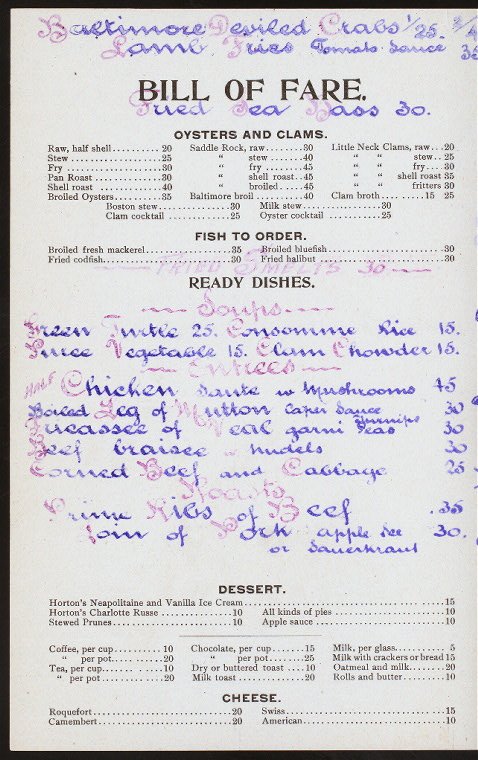 Baltimore Deviled Crabs 1/25. 2/4
Lamb Fries Tomato Sauce 35
BILL OF FARE.
Fried Sea Bass 30.
OYSTERS AND CLAMS.
Raw, half shell.......... 20 Saddle Rock, raw........30 Little Neck Clams, raw...20
Stew ......................25 " stew .......40 " " stew...25
Fry ........................30 " fry .......45 " " fry....30
Pan Roast .................30 " shell roast..45 " " shell roast 35
Shell roast ...............40 " broiled.....45 " " fritters 30
Broiled Oysters...........35 Baltimore broil ...........40 Clam broth.........15 25
Boston stew................30 Milk stew .....................30
Clam cocktail .............25 Oyster cocktail ..............25
FISH TO ORDER.
Broiled fresh mackerel.................35 Broiled bluefish.......................30
Fried codfish...........................30 Fried halibut ..........................30
FRIED SMELTS 30
READY DISHES.
Soups
Green Turtle 25. Consomme Rice 15.
Puree Vegetable 15. Clam Chowder 15.
Entrees
HALF Chicken Saute w Mushrooms 45
Boiled Leg of Mutton Caper Sauce 30
Turnips
Fricassee of Veal garni Peas 30
Beef braisee w nudels 30
Corned Beef and Cabbage 25
Roasts
Prime Ribs of Beef .35
Loin of Pork apple sce 30.
or Sauerkraut
DESSERT.
Horton's Neapolitaine and Vanilla Ice Cream..........................................15
Horton's Charlotte Russe ...............10 All kinds of pies .......................10
Stewed Prunes...........................10 Apple sauce .............................10
Coffee, per cup...........10 Chocolate, per cup......15 Milk, per glass.......... 5
" per pot...........20 " per pot........25 Milk with crackers or bread 15
Tea, per cup..............10 Dry or buttered toast ....10 Oatmeal and milk.......20
" per pot ..............20 Milk toast ...............20 Rolls and butter..........10
CHEESE.
Roquefort...............................20 Swiss....................................15
Camembert...............................20 American.................................10